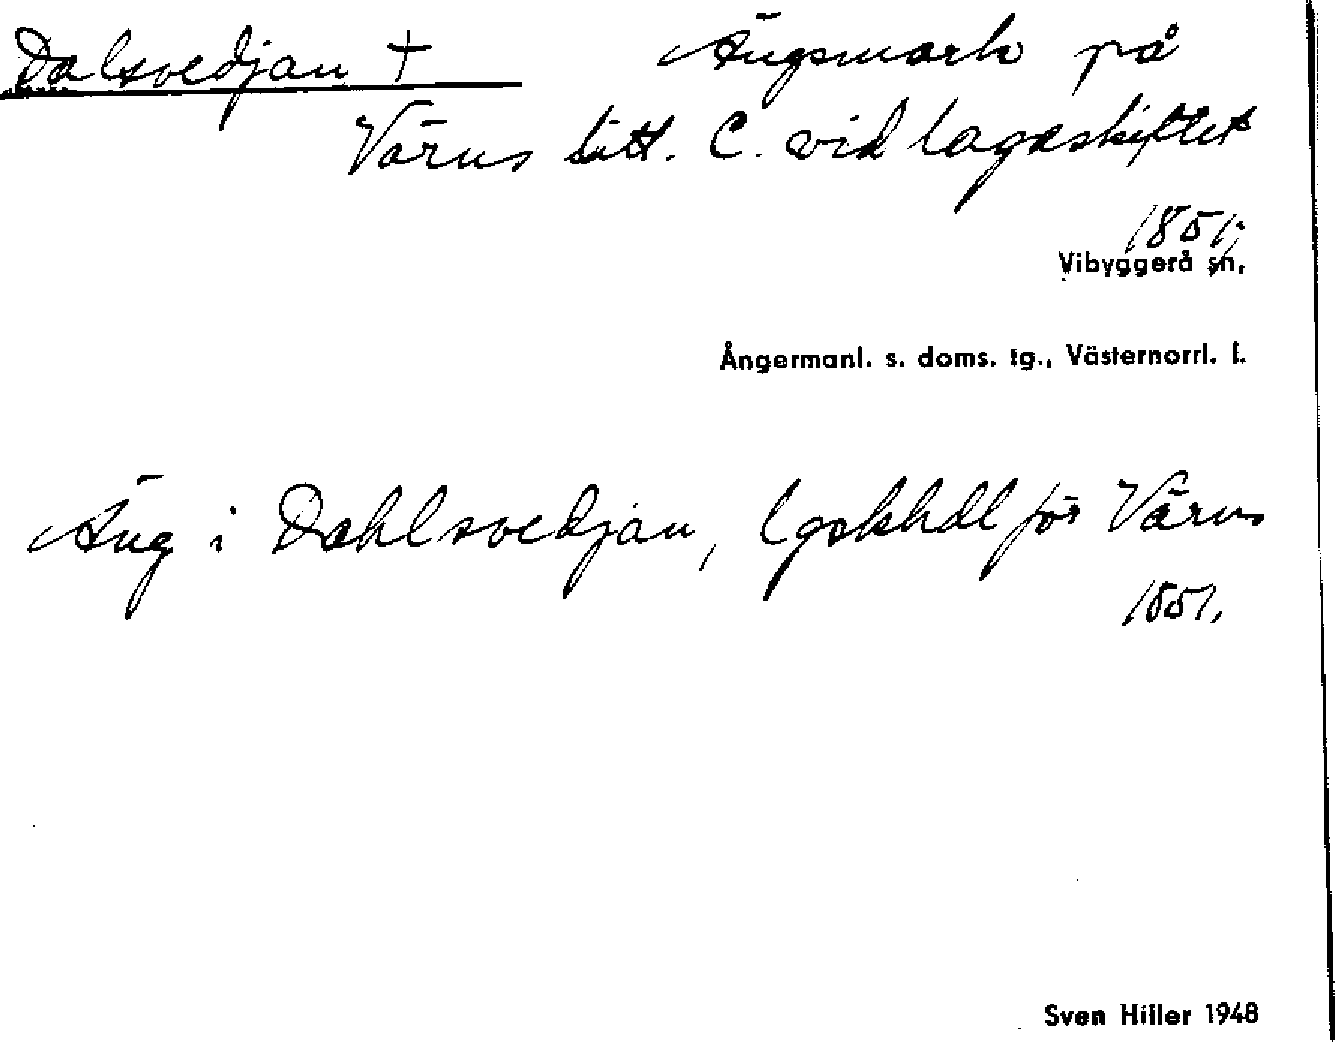 Dalsvedjan † Ängsmark på
Värns Litt. C. vid lagaskiftet
1851;
Vibyggerå sn,
Ångermanl. s. doms. tg., Västernorrl. l.
Äng i Dahlsvedjan, lgskhdl för Värns
1851.
Sven Hiller 1948